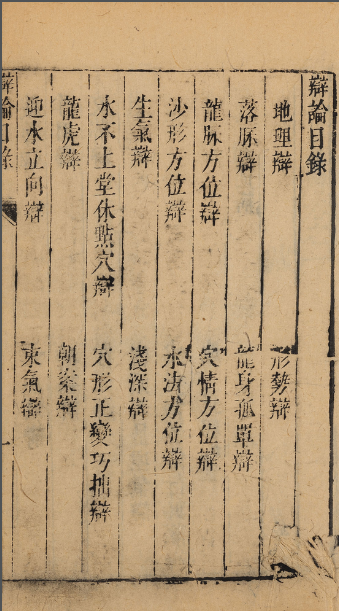 辯論目錄
地理辯
形勢辯
落脉辯
龍身孤單辯
龍脉方位辯
穴情方位辯
沙形方位辯
水法方位辯
生氣辯
淺深辯
水不上堂休點穴辯
穴形正變巧拙辯
龍虎辯
朝案辯
迎水立向辯
乘氣辯
辯論目錄
一